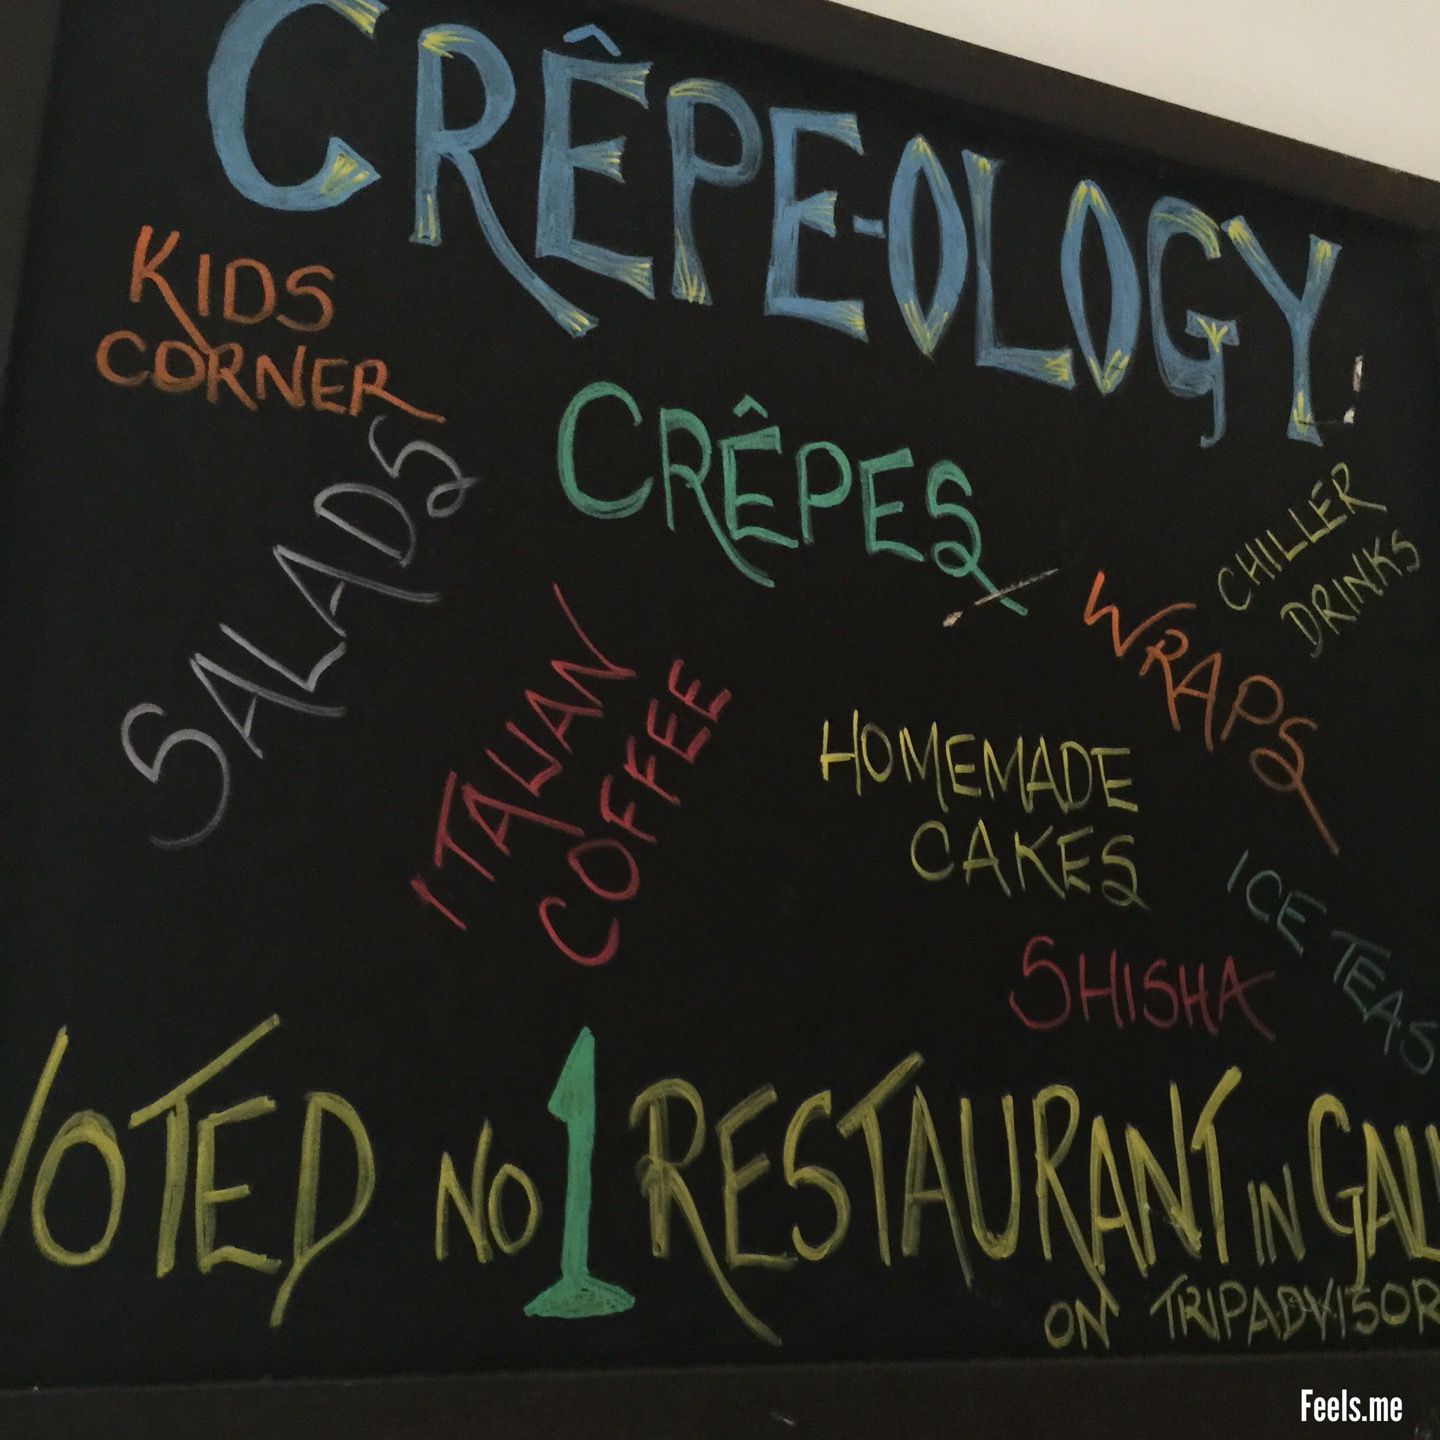 CRÊPE-OLOGY
KIDS
CORNER
CRÊPES
SALADS
CHILLER
DRINKS
WRAPS
ITALIAN
COFFEE
HOMEMADE
CAKES
ICE TEAS
SHISHA
VOTED NO 1 RESTAURANT IN GALL
ON TRIPADVISOR
Feels.me